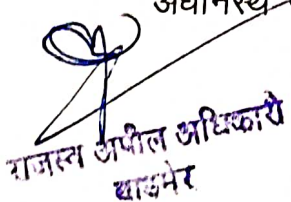 अधीनस्थ
राजस्व अपील अधिकारी
बाडमेर